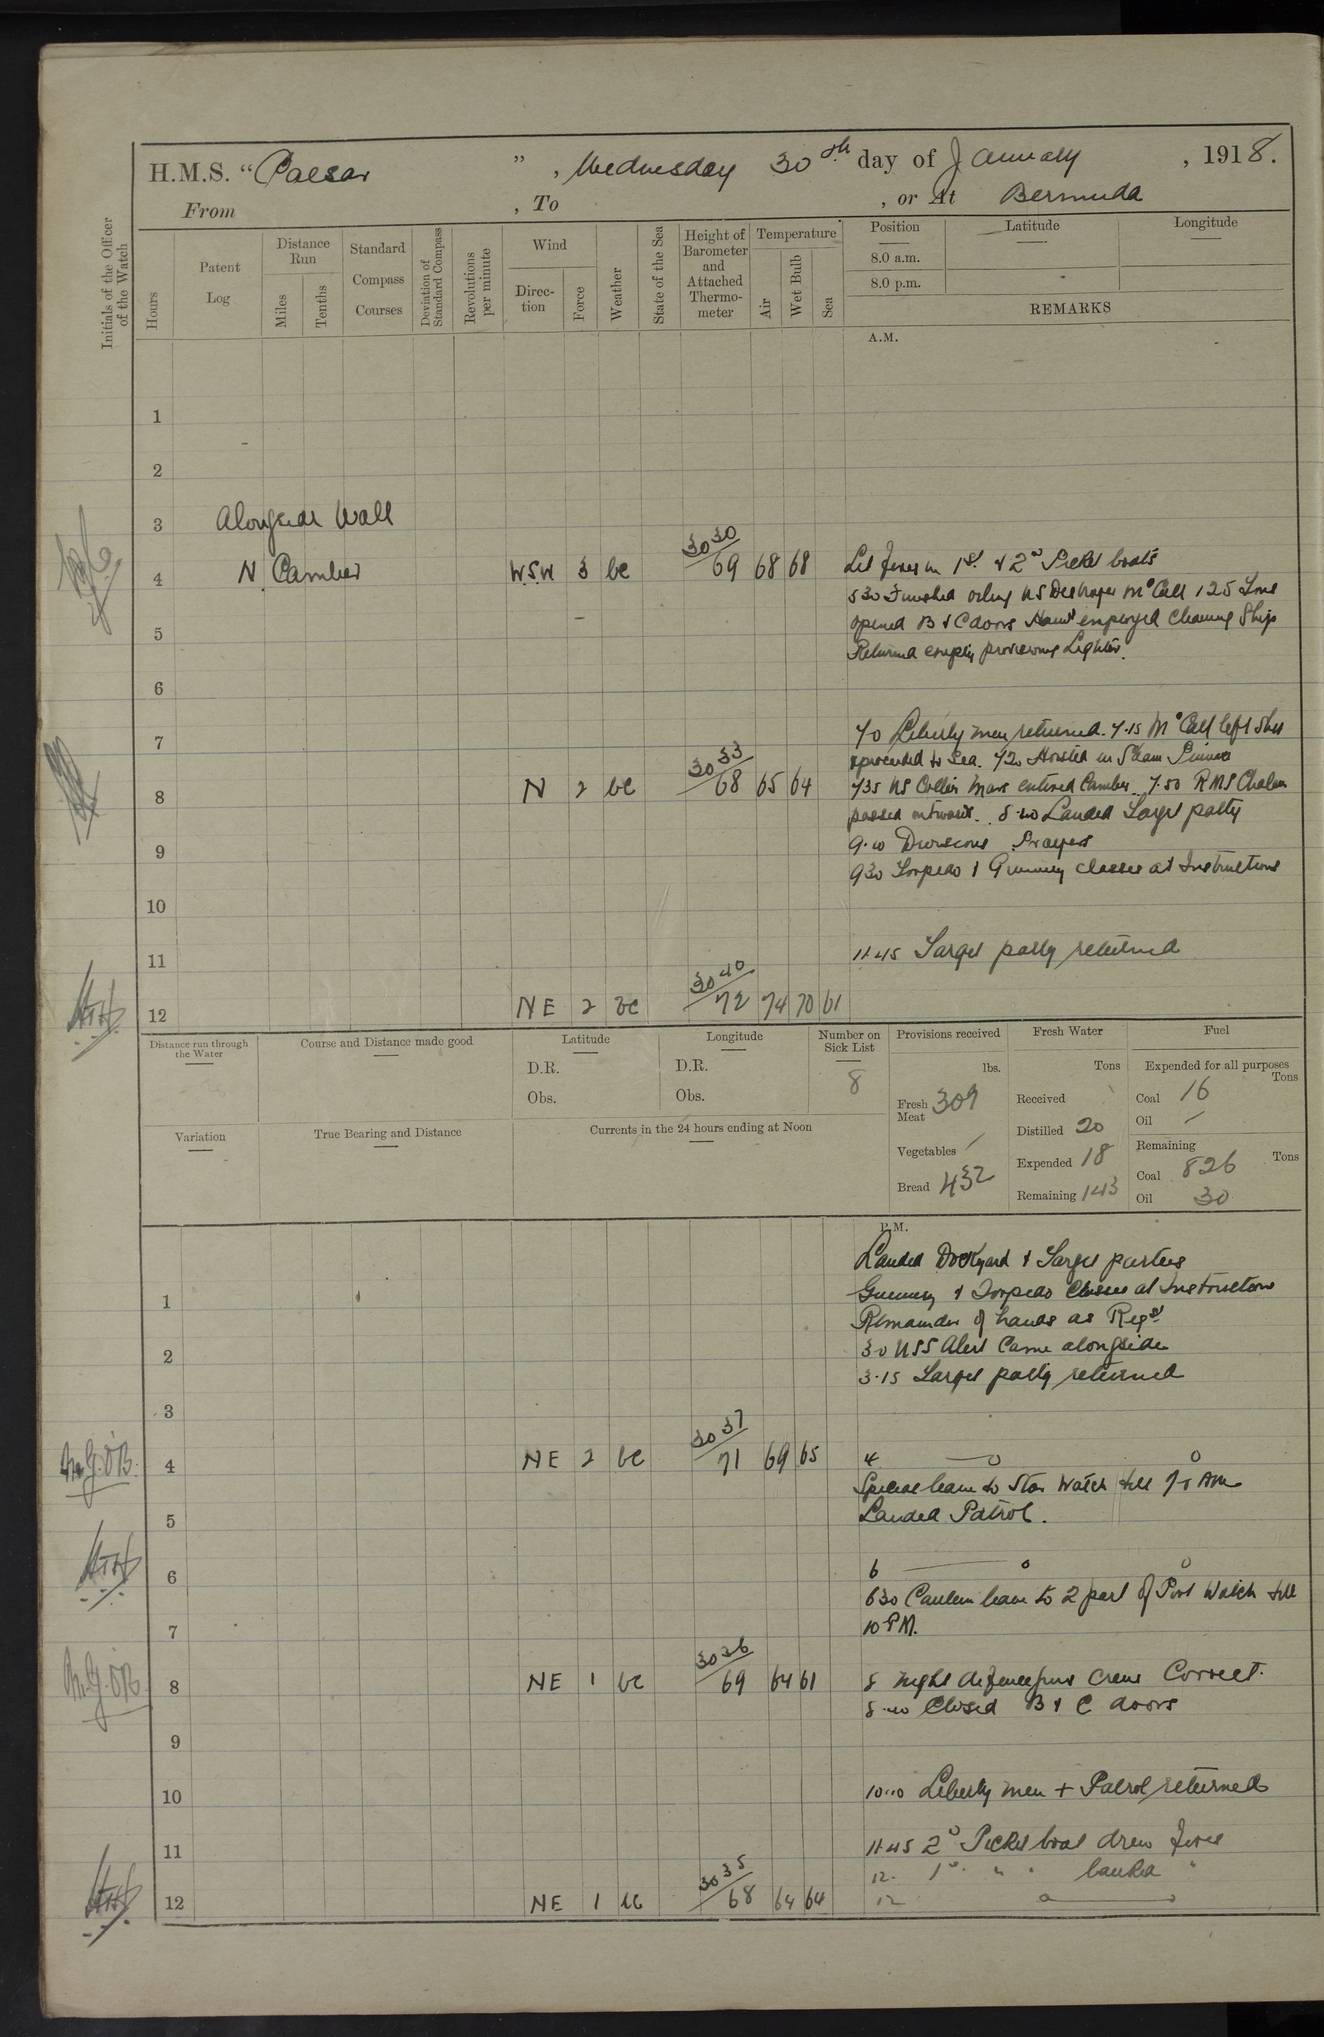 H.M.S. "Caesar", Wednesday 30th day of January, 1918.
From , To , or At Bermuda
Initials of the Officer of the Watch
Hours
Patent Log
Distance Run
Miles
Tenths
Standard Compass Courses
Deviation of Standard Compass
Revolutions per minute
Wind
Direction
Force
Weather
State of the Sea
Height of Barometer and Attached Thermometer
Temperature
Air
Wet Bulb
Sea
Position
Latitude
Longitude
8.0 a.m.
8.0 p.m.
REMARKS
A.M.
1
2
3 Alongside Wall
4 N Camber W.S.W 3 bc 30 30 / 69 68 68 Lit fires in 1st & 2d Picket boats
5 30 Finished oiling US Destroyer McCall 125 Tons
5 opened B & C doors Hands employed Cleaning Ship
Returned empty provisions Lighter.
6
7 7 0 Liberty men returned. 7.15 McCall left
proceeded to Sea. 7 20 Hoisted in Steam Pinnace
8 N 2 bc 30 33 / 68 65 64 7 35 US Collier Mars entered Camber. 7.50 RMS
passed outwards. 8.40 Landed Target party
9 9.10 Divisions Prayers
9 30 Torpedo & Gunnery classes at Instructions
10
11 11.45 Target party returned
12 NE 2 bc 30 40 / 72 74 70 61
Distance run through the Water
Course and Distance made good
Latitude
D.R.
Obs.
Longitude
D.R.
Obs.
Number on Sick List
8
Provisions received
lbs.
Fresh Meat 309
Vegetables /
Bread 432
Fresh Water
Tons
Received
Distilled 20
Expended 18
Remaining 143
Fuel
Expended for all purposes
Tons
Coal 16
Oil /
Remaining
Tons
Coal 826
Oil 30
Variation
True Bearing and Distance
Currents in the 24 hours ending at Noon
P.M.
Landed Dockyard & Target parties
1 Gunnery & Torpedo Classes at Instructions
Remainder of hands as Reqd
2 3.0 USS Alert Came alongside
3.15 Target party returned
3
M.G.OB. 4 NE 2 bc 30 37 / 71 69 65 4 — o o
Special leave to Star Watch till 7.0 AM
5 Landed Patrol.
6 6 — o o
6 30 Canteen leave to 2 part of Port Watch till
7 10 PM.
M.G.OB. 8 NE 1 bc 30 36 / 69 64 61 8 Night defence guns crews Correct.
8.40 Closed B & C doors
9
10 10.10 Liberty men + Patrol returned
11 11.45 2d Picket boat drew fires
12. 1st " " banked "
12 NE 1 bc 30 35 / 68 64 64 12